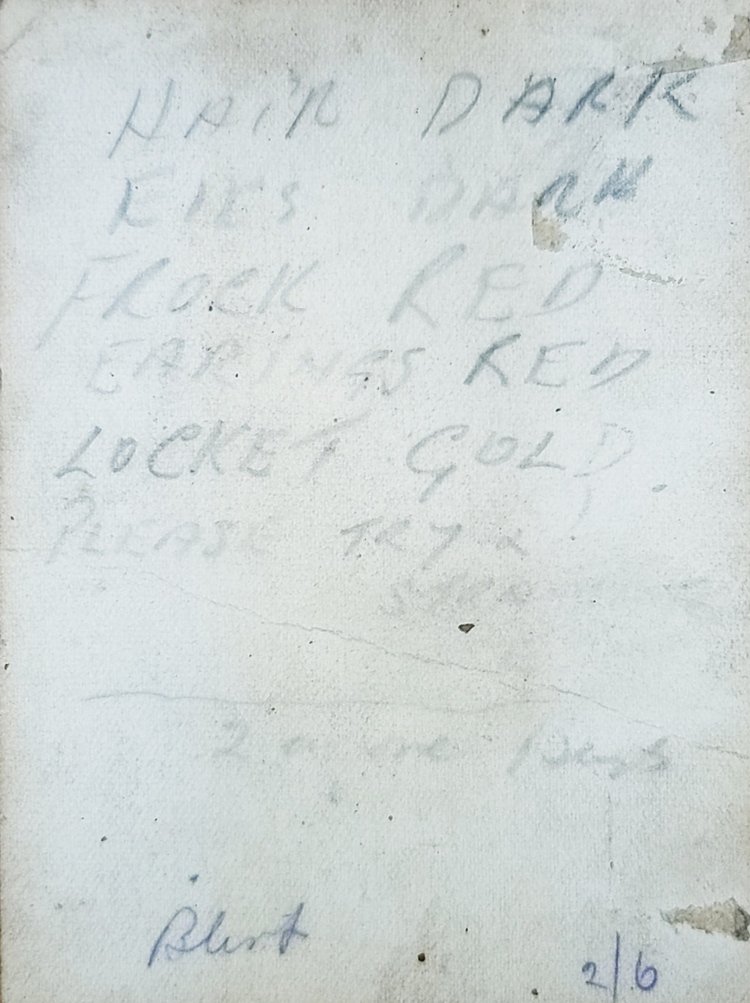 HAIR DARK
EIES DARK
FROCK RED
EARINGS RED
LOCKET GOLD.
PLEASE TRY &
2 more
Blunt
2/6